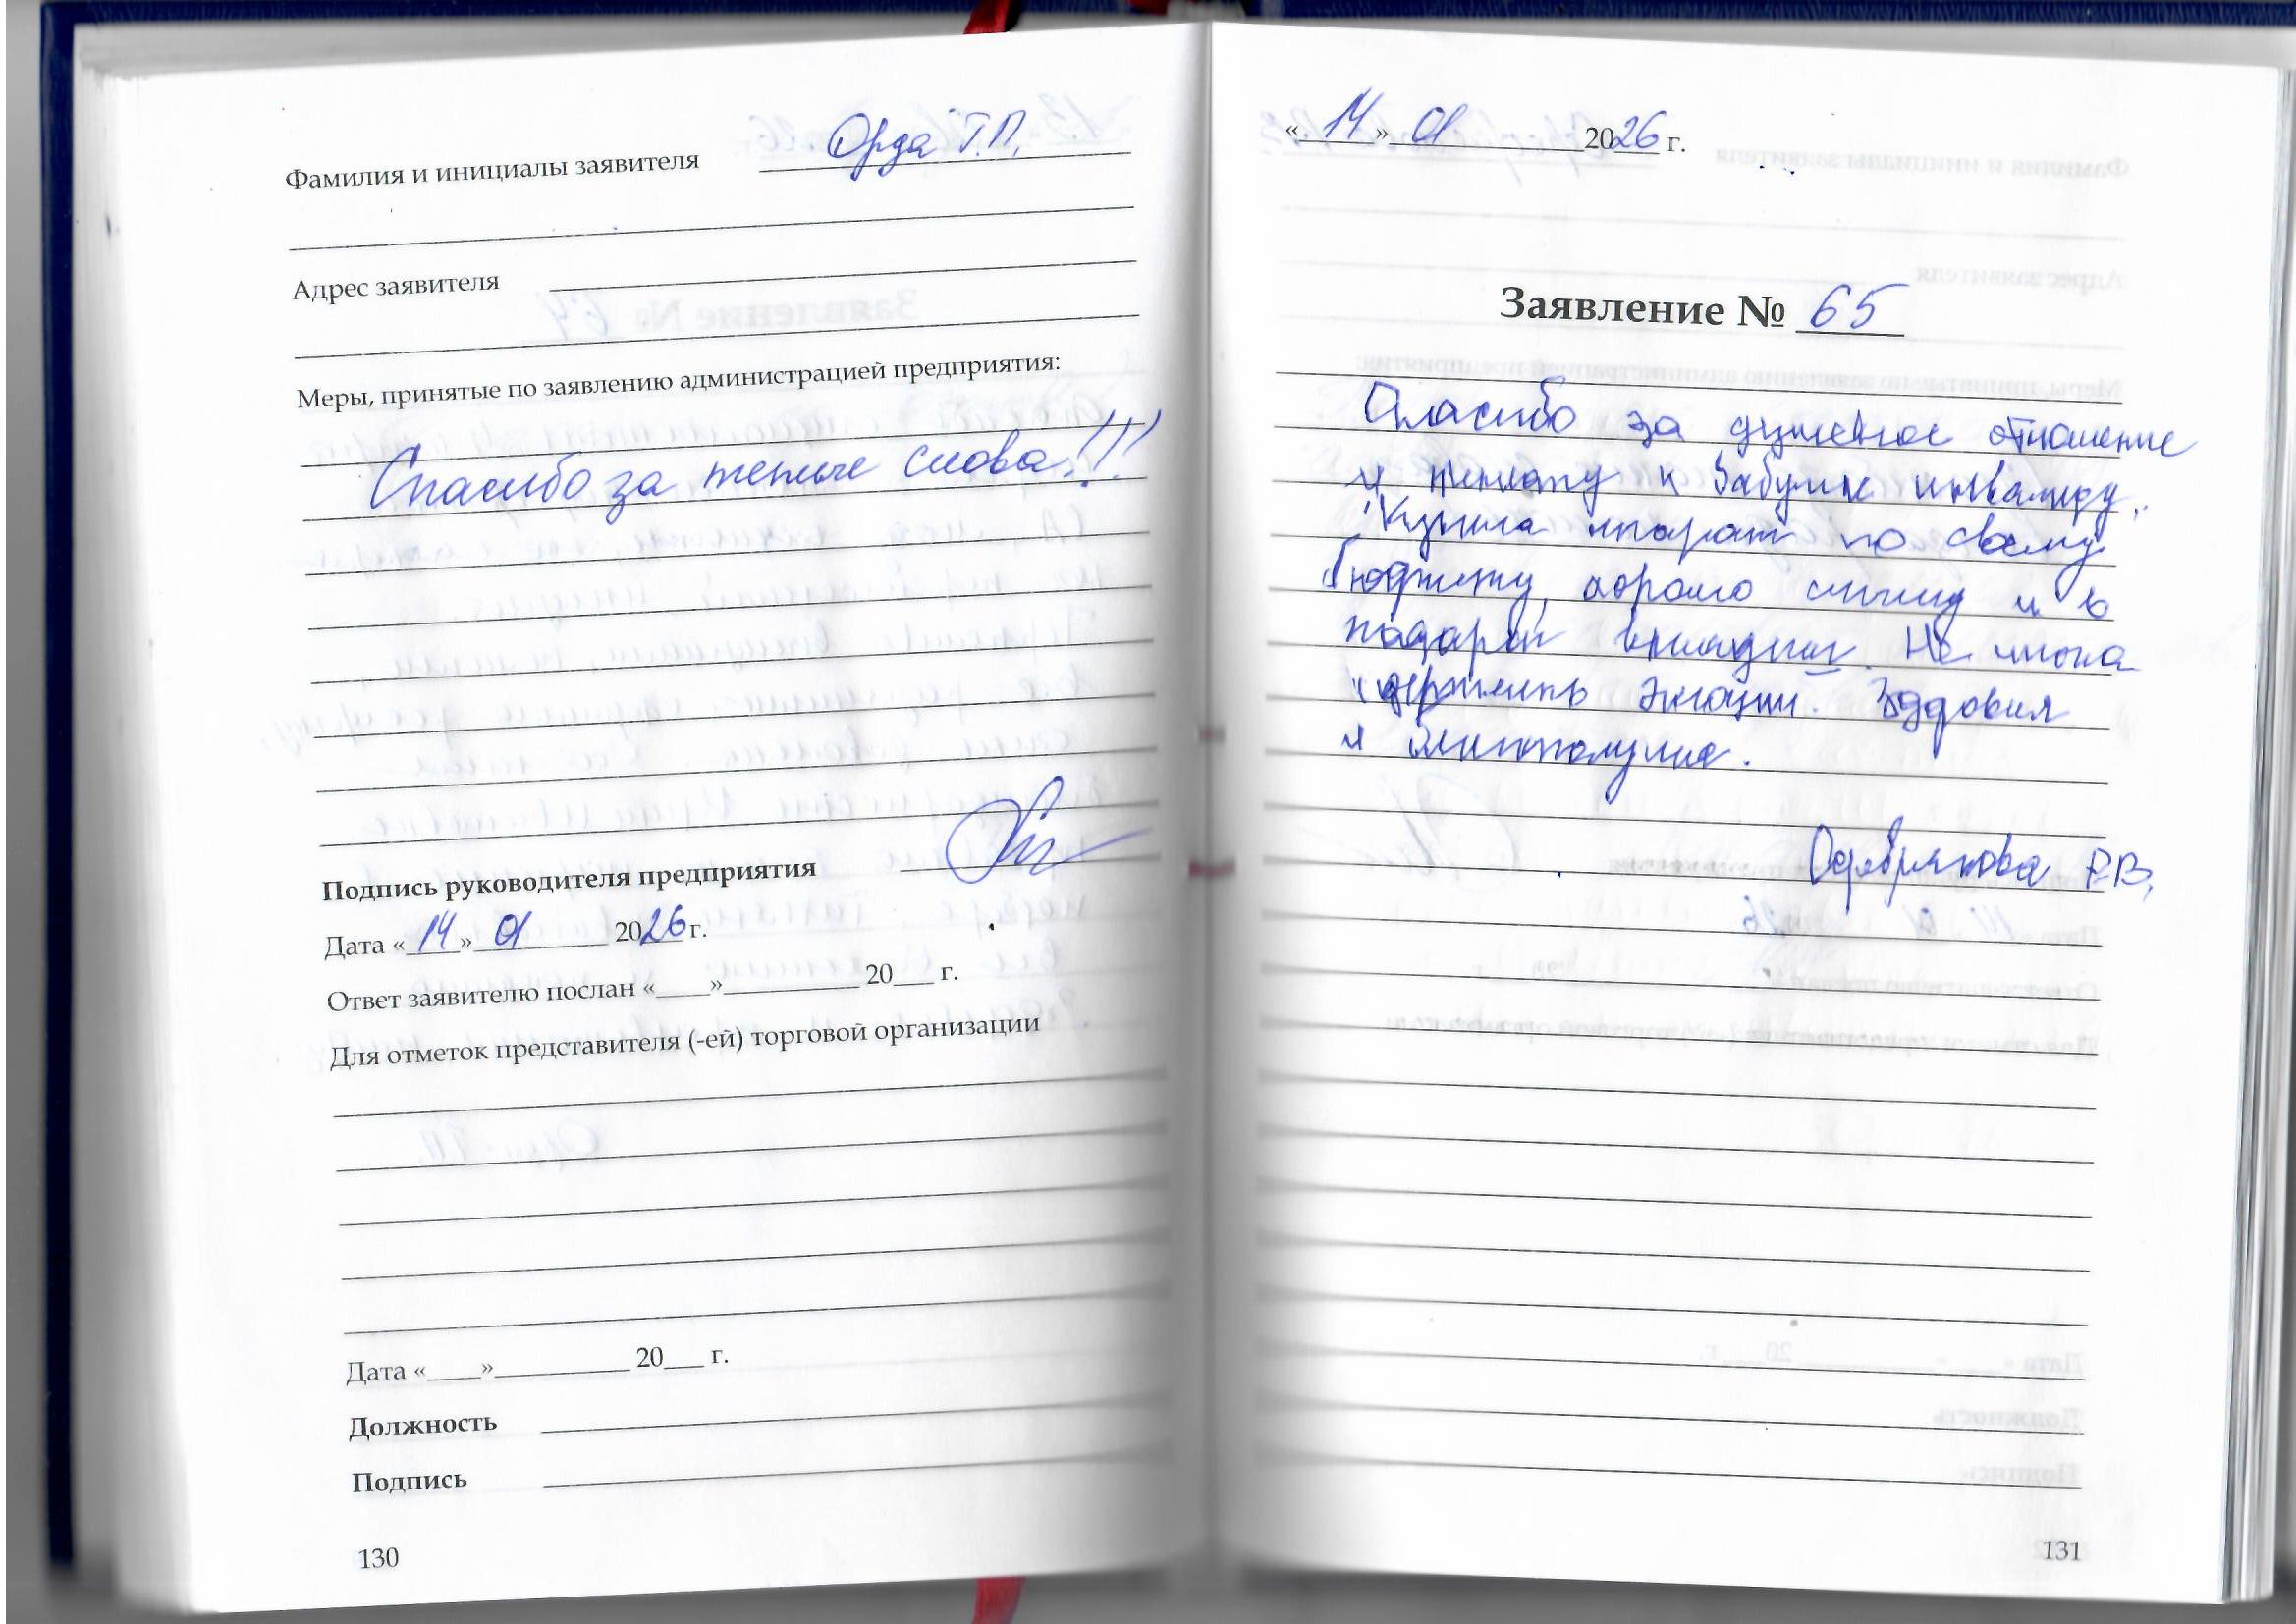 Фамилия и инициалы заявителя Орда Т.П.
Адрес заявителя
Меры, принятые по заявлению администрацией предприятия:
Спасибо за теплые слова!!!
Подпись руководителя предприятия
Дата «14» 01 2026 г.
Ответ заявителю послан «____»__________ 20___ г.
Для отметок представителя (-ей) торговой организации
Дата «____»__________ 20___ г.
Должность
Подпись
130
«14» 01 2026 г.
Заявление № 65
Спасибо за душевное отношение
и теплоту к бабушке инвалиду.
Купила аппарат по своему
бюджету, хорошо слышу и в
подарок вкладыш. Не могла
сдержать эмоции. Здоровья
и благополучия.
Серебрякова Р.В.
131